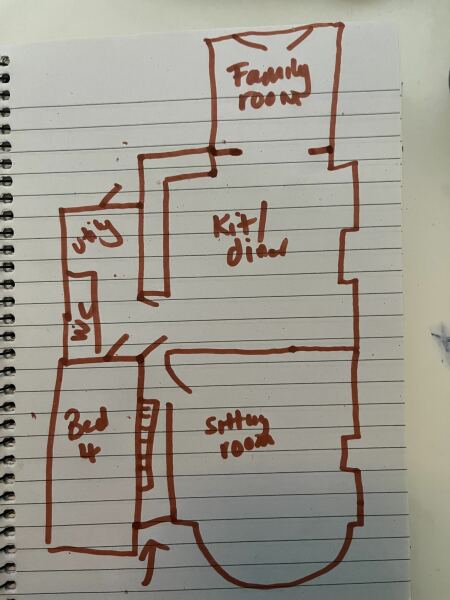 Family
room
utily
Kit/
diner
WC
Bed
4
Sitting
room